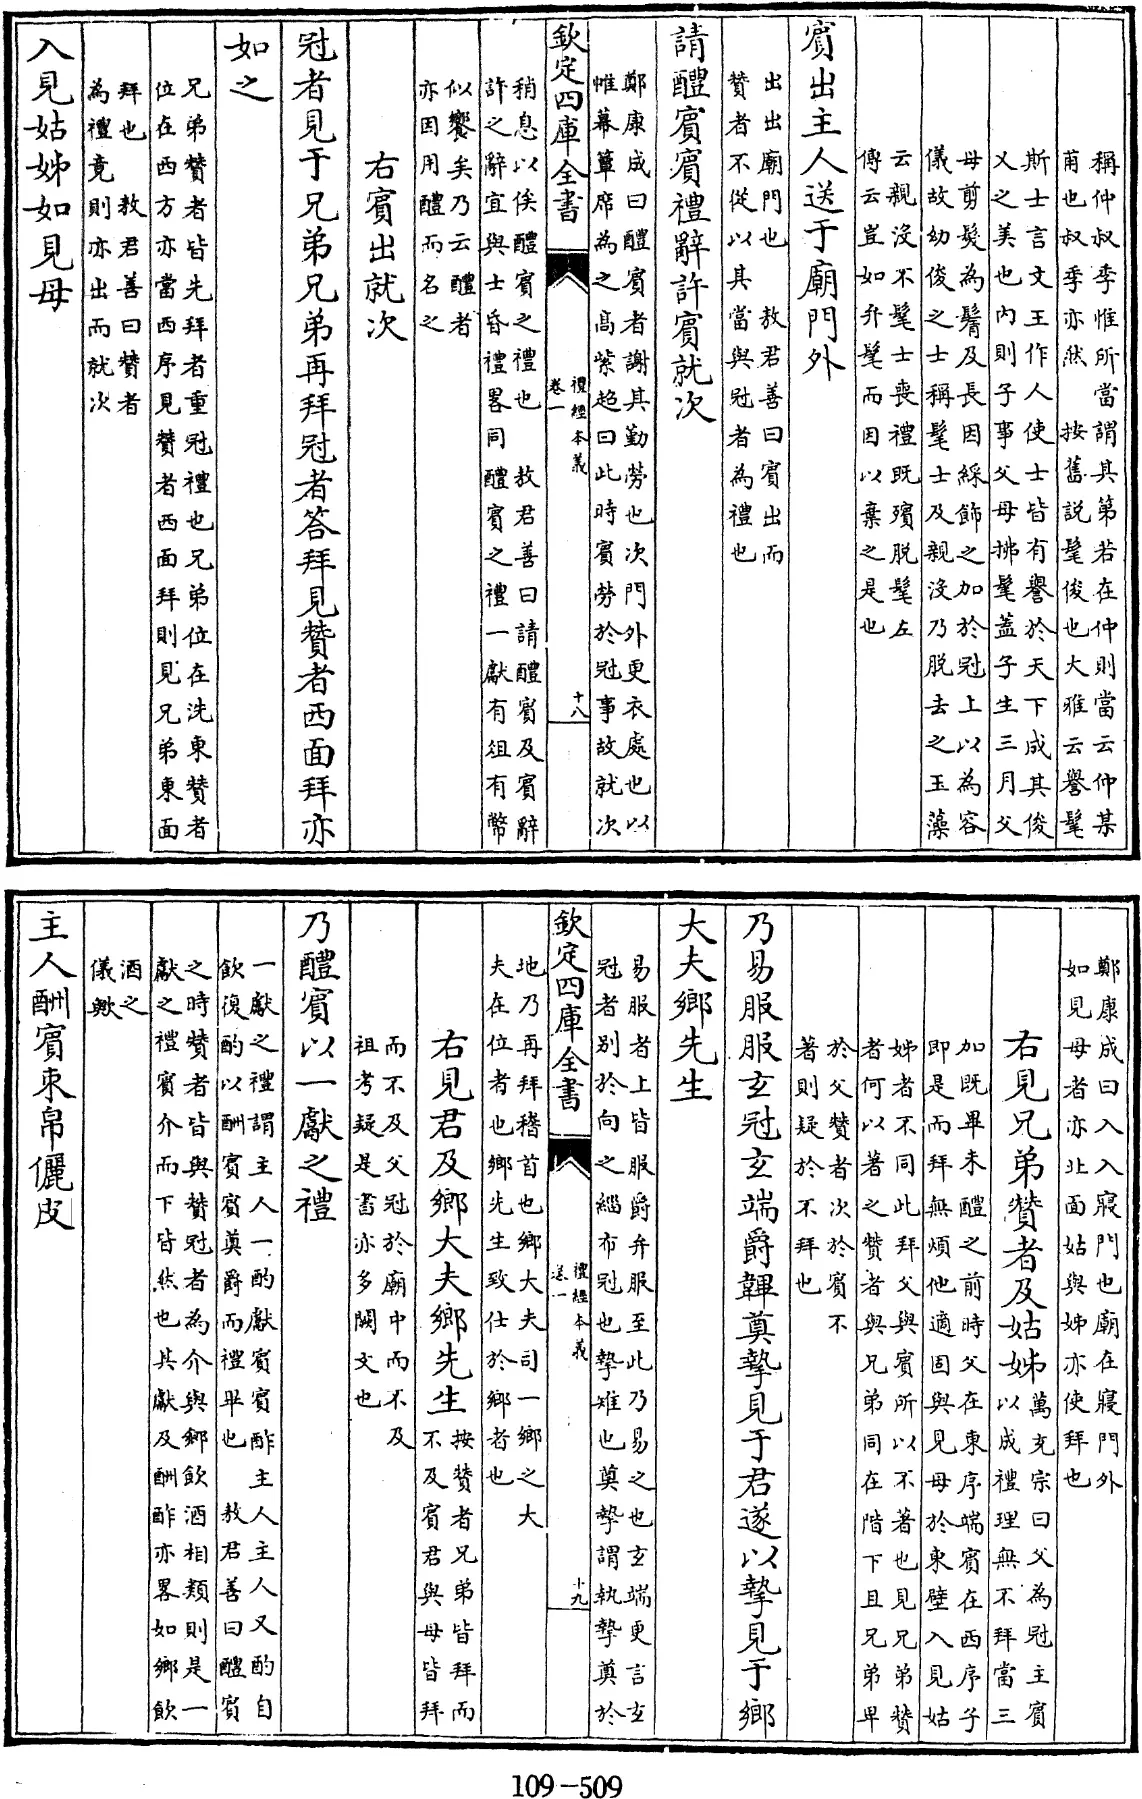 稱仲叔季惟所當謂其第若在仲則當云仲某
甫也叔季亦然　按舊説髦俊也大雅云譽髦
斯士言文王作人使士皆有譽於天下成其俊
乂之美也内則子事父母拂髦蓋子生三月父
母剪髮為鬌及長因綵飾之加於冠上以為容
儀故幼俊之士稱髦士及親沒乃脱去之玉藻
云親沒不髦士喪禮既殯脱髦左
傳云豈如弁髦而因以棄之是也
賓出主人送于廟門外
出出廟門也　敖君善曰賓出而
贊者不從以其當與冠者為禮也
請醴賓賓禮辭許賓就次
鄭康成曰醴賓者謝其勤勞也次門外更衣處也以
帷幕簟席為之高紫超曰此時賓勞於冠事故就次
欽定四庫全書
禮經本義
卷一
十八
稍息以俟醴賓之禮也　敖君善曰請醴賓及賓辭
許之辭宜與士昏禮畧同醴賓之禮一獻有俎有幣
似饗矣乃云醴者
亦因用醴而名之
右賓出就次
冠者見于兄弟兄弟再拜冠者答拜見贊者西面拜亦
如之
兄弟贊者皆先拜者重冠禮也兄弟位在洗東贊者
位在西方亦當西序見贊者西面拜則見兄弟東面
拜也　敖君善曰贊者
為禮竟則亦出而就次
入見姑姊如見母
鄭康成曰入入寢門也廟在寢門外
如見母者亦北面姑與姊亦使拜也
右見兄弟贊者及姑姊
萬充宗曰父為冠主賓
以成禮理無不拜當三
加既畢未醴之前時父在東序端賓在西序子
即是而拜無煩他適固與見母於東壁入見姑
姊者不同此拜父與賓所以不著也見兄弟贊
者何以著之贊者與兄弟同在階下且兄弟卑
於父贊者次於賓不
著則疑於不拜也
乃易服服玄冠玄端爵韠奠摯見于君遂以摯見于鄉
大夫鄉先生
易服者上皆服爵弁服至此乃易之也玄端更言玄
冠者别於向之緇布冠也摯雉也奠摯謂執摯奠於
欽定四庫全書
禮經本義
卷一
十九
地乃再拜稽首也鄉大夫司一鄉之大
夫在位者也鄉先生致仕於鄉者也
右見君及鄉大夫鄉先生
按贊者兄弟皆拜而
不及賓君與母皆拜
而不及父冠於廟中而不及
祖考疑是書亦多闕文也
乃醴賓以一獻之禮
一獻之禮謂主人一酌獻賓賓酢主人主人又酌自
飲復酌以酬賓賓奠爵而禮畢也　敖君善曰醴賓
之時贊者皆與贊冠者為介與鄉飲酒相類則是一
獻之禮賓介而下皆然也其獻及酬酢亦畧如鄉飲
酒之
儀歟
主人酬賓束帛儷皮
109-509